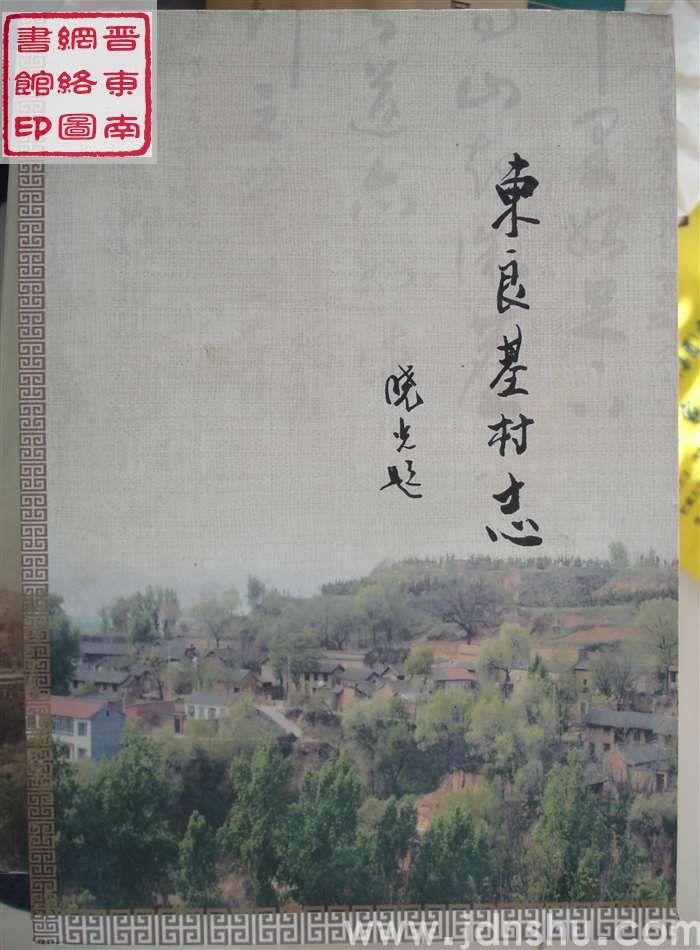 晋東南
網絡圖
書館印
東良基村志
晓光题
www.jdnshu.com